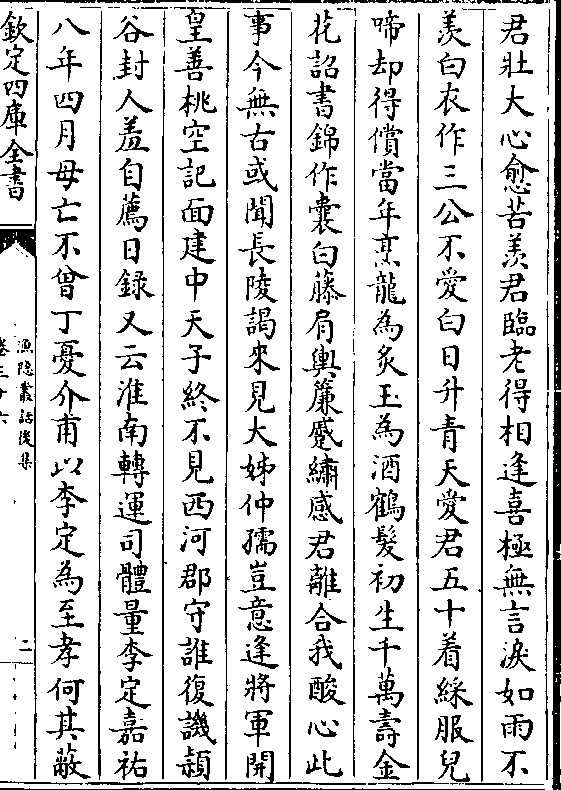 君壯大心愈苦羨君臨老得相逢喜極無言淚如雨不
羨白衣作三公不愛白日升青天愛君五十着綵服兒
啼却得償當年烹龍為炙玉為酒鶴髮初生千萬壽金
花詔書錦作囊白藤肩輿簾蹙繡感君離合我酸心此
事今無古或聞長陵謁來見大姊仲孺豈意逢將軍開
皇善桃空記面建中天子終不見西河郡守誰復譏潁
谷封人羞自薦日録又云淮南轉運司體量李定嘉祐
八年四月母亡不曾丁憂介甫以李定為至孝何其蔽
欽定四庫全書
漁隱叢話後集
卷三十六
二